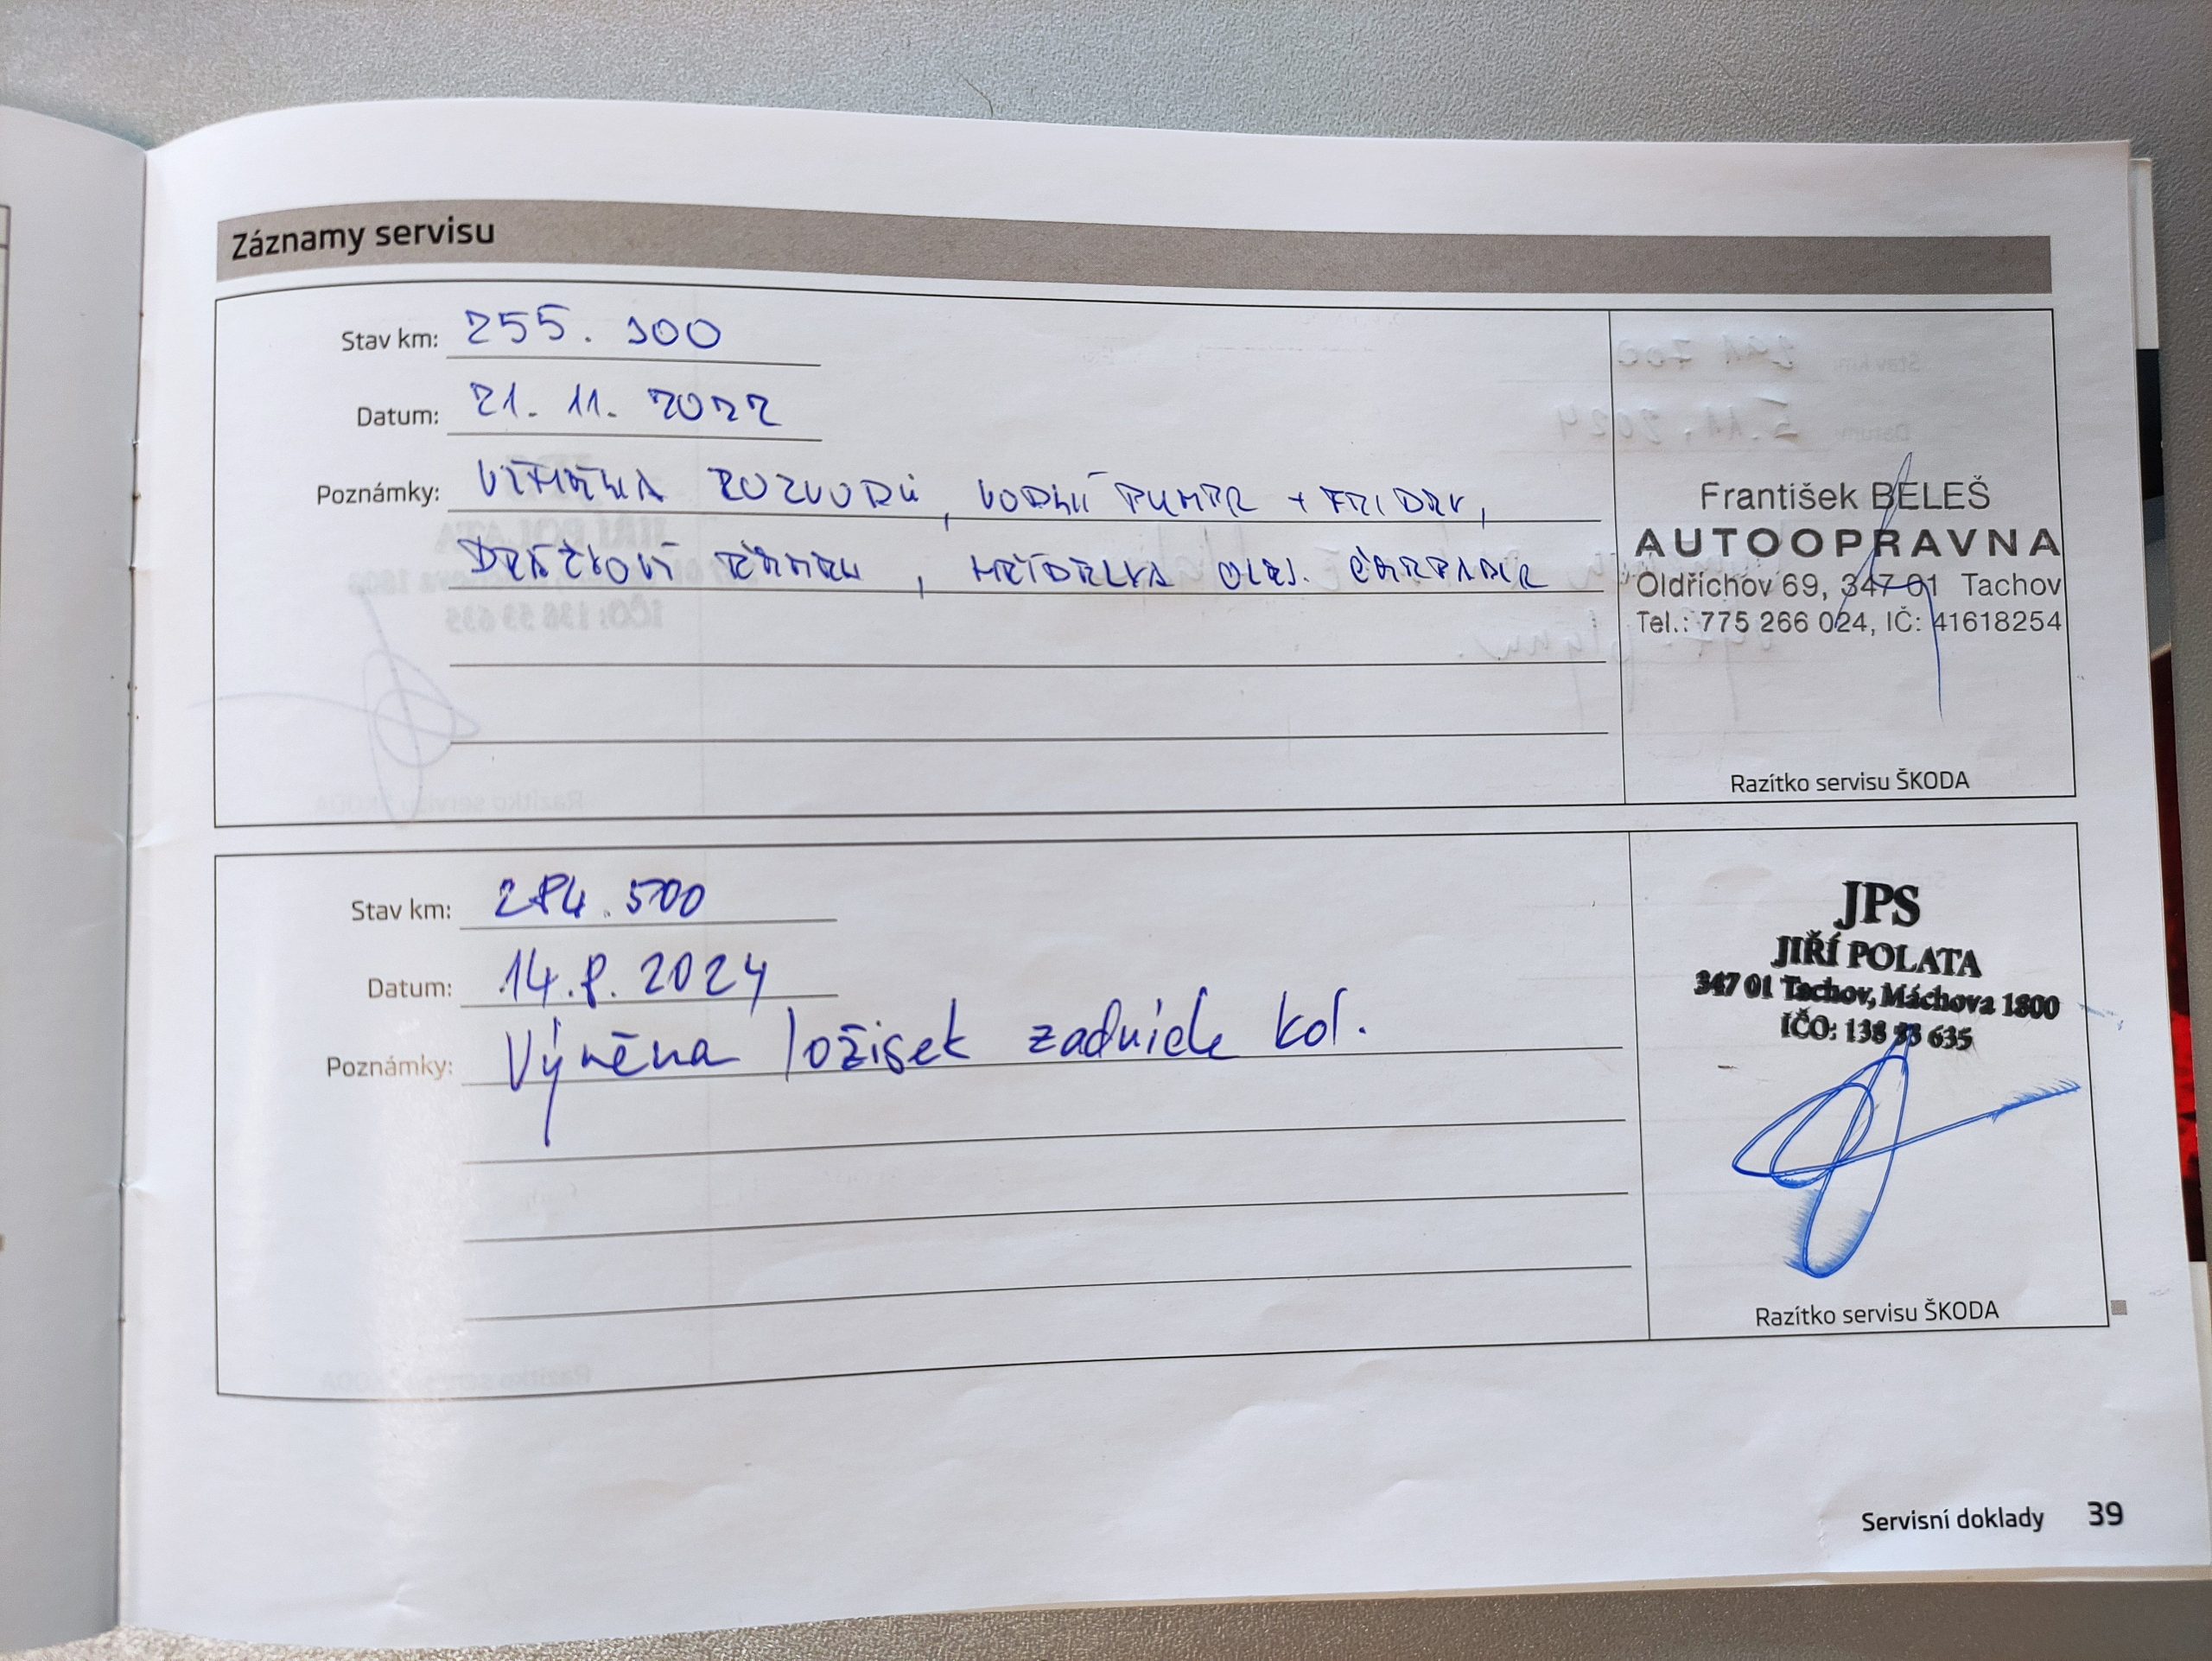 Záznamy servisu
Stav km: 255.300
Datum: 21. 11. 2022
Poznámky: VÝMĚNA ROZVODŮ, VODNÍ PUMPA + FRIDEX,
DRÁŽKOVÝ ŘEMEN, HŘÍDELKA OLEJ. ČERPADLA
František BELEŠ
AUTOOPRAVNA
Oldřichov 69, 347 01 Tachov
Tel.: 775 266 024, IČ: 41618254
Razítko servisu ŠKODA
Stav km: 284.500
Datum: 14.8.2024
Poznámky: Výměna ložisek zadních kol.
JPS
JIŘÍ POLATA
347 01 Tachov, Máchova 1800
IČO: 138 53 635
Razítko servisu ŠKODA
Servisní doklady 39